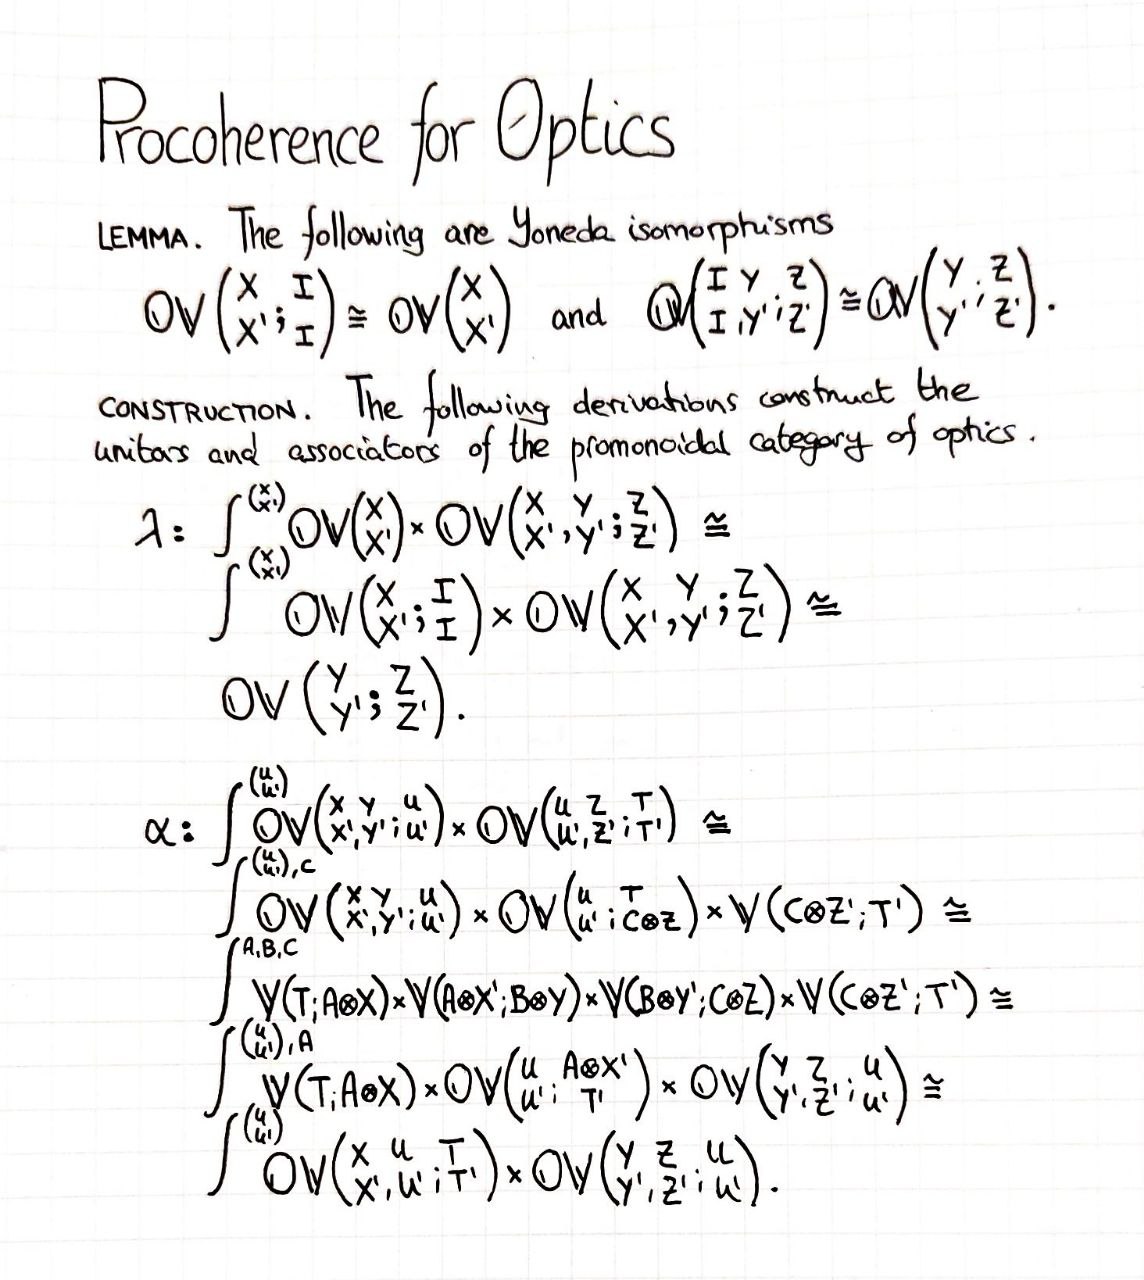 Procoherence for Optics
LEMMA. The following are Yoneda isomorphisms
𝕆𝕍(X X' ; I I) ≅ 𝕆𝕍(X X') and 𝕆𝕍(I I , Y Y' ; Z Z') ≅ 𝕆𝕍(Y Y' ; Z Z').
CONSTRUCTION. The following derivations construct the
unitors and associators of the promonoidal category of optics.
λ: ∫^(X X') 𝕆𝕍(X X') × 𝕆𝕍(X X' , Y Y' ; Z Z') ≅
∫^(X X') 𝕆𝕍(X X' ; I I) × 𝕆𝕍(X X' , Y Y' ; Z Z') ≅
𝕆𝕍(Y Y' ; Z Z').
α: ∫^(U U') 𝕆𝕍(X X' , Y Y' ; U U') × 𝕆𝕍(U U' , Z Z' ; T T') ≅
∫^(U U'),C 𝕆𝕍(X X' , Y Y' ; U U') × 𝕆𝕍(U U' ; T C⊗Z) × 𝕍(C⊗Z' ; T') ≅
∫^A,B,C 𝕍(T;A⊗X) × 𝕍(A⊗X';B⊗Y) × 𝕍(B⊗Y';C⊗Z) × 𝕍(C⊗Z';T') ≅
∫^(U U'),A 𝕍(T;A⊗X) × 𝕆𝕍(U U' ; A⊗X' T') × 𝕆𝕍(Y Y' , Z Z' ; U U') ≅
∫^(U U') 𝕆𝕍(X X' , U U' ; T T') × 𝕆𝕍(Y Y' , Z Z' ; U U').